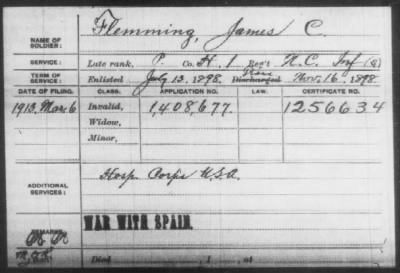 Flemming, James C.
NAME OF SOLDIER:
SERVICE: Late rank, P. Co. H. 1 Reg't N.C. Inf
TERM OF SERVICE: Enlisted July 13, 1898. Discharged Trans Nov. 16, 1898.
DATE OF FILING. CLASS. APPLICATION NO. LAW. CERTIFICATE NO.
1913 Mar. 6 Invalid, 1,408,677. 1256634
Widow,
Minor,
ADDITIONAL SERVICES: Hosp. Corps U.S.A.
REMARKS: WAR WITH SPAIN.
Died , 1 , at